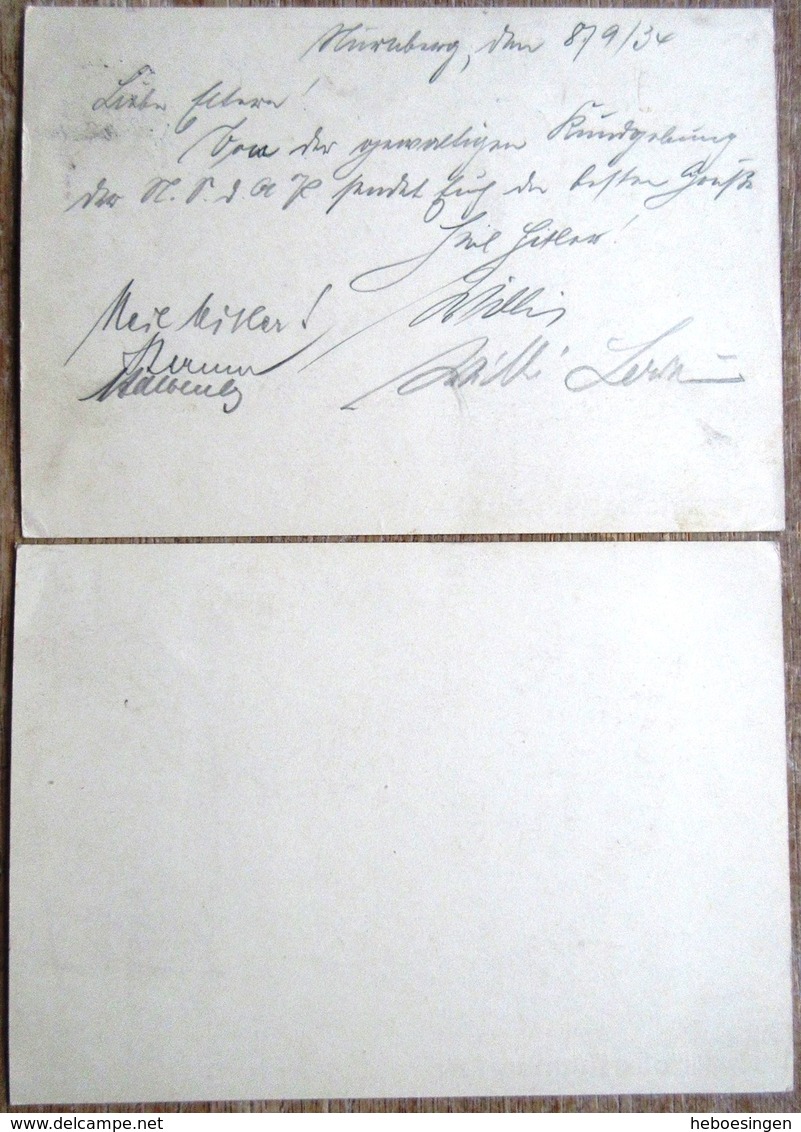 Nürnberg, den 8/9/34
Liebe Eltern!
Von der gewaltigen Kundgebung
der N.S.d.A.P sendet Euch die besten Grüße
Heil Hitler!
Willi
Heil Hitler!
Willi
heboesingen